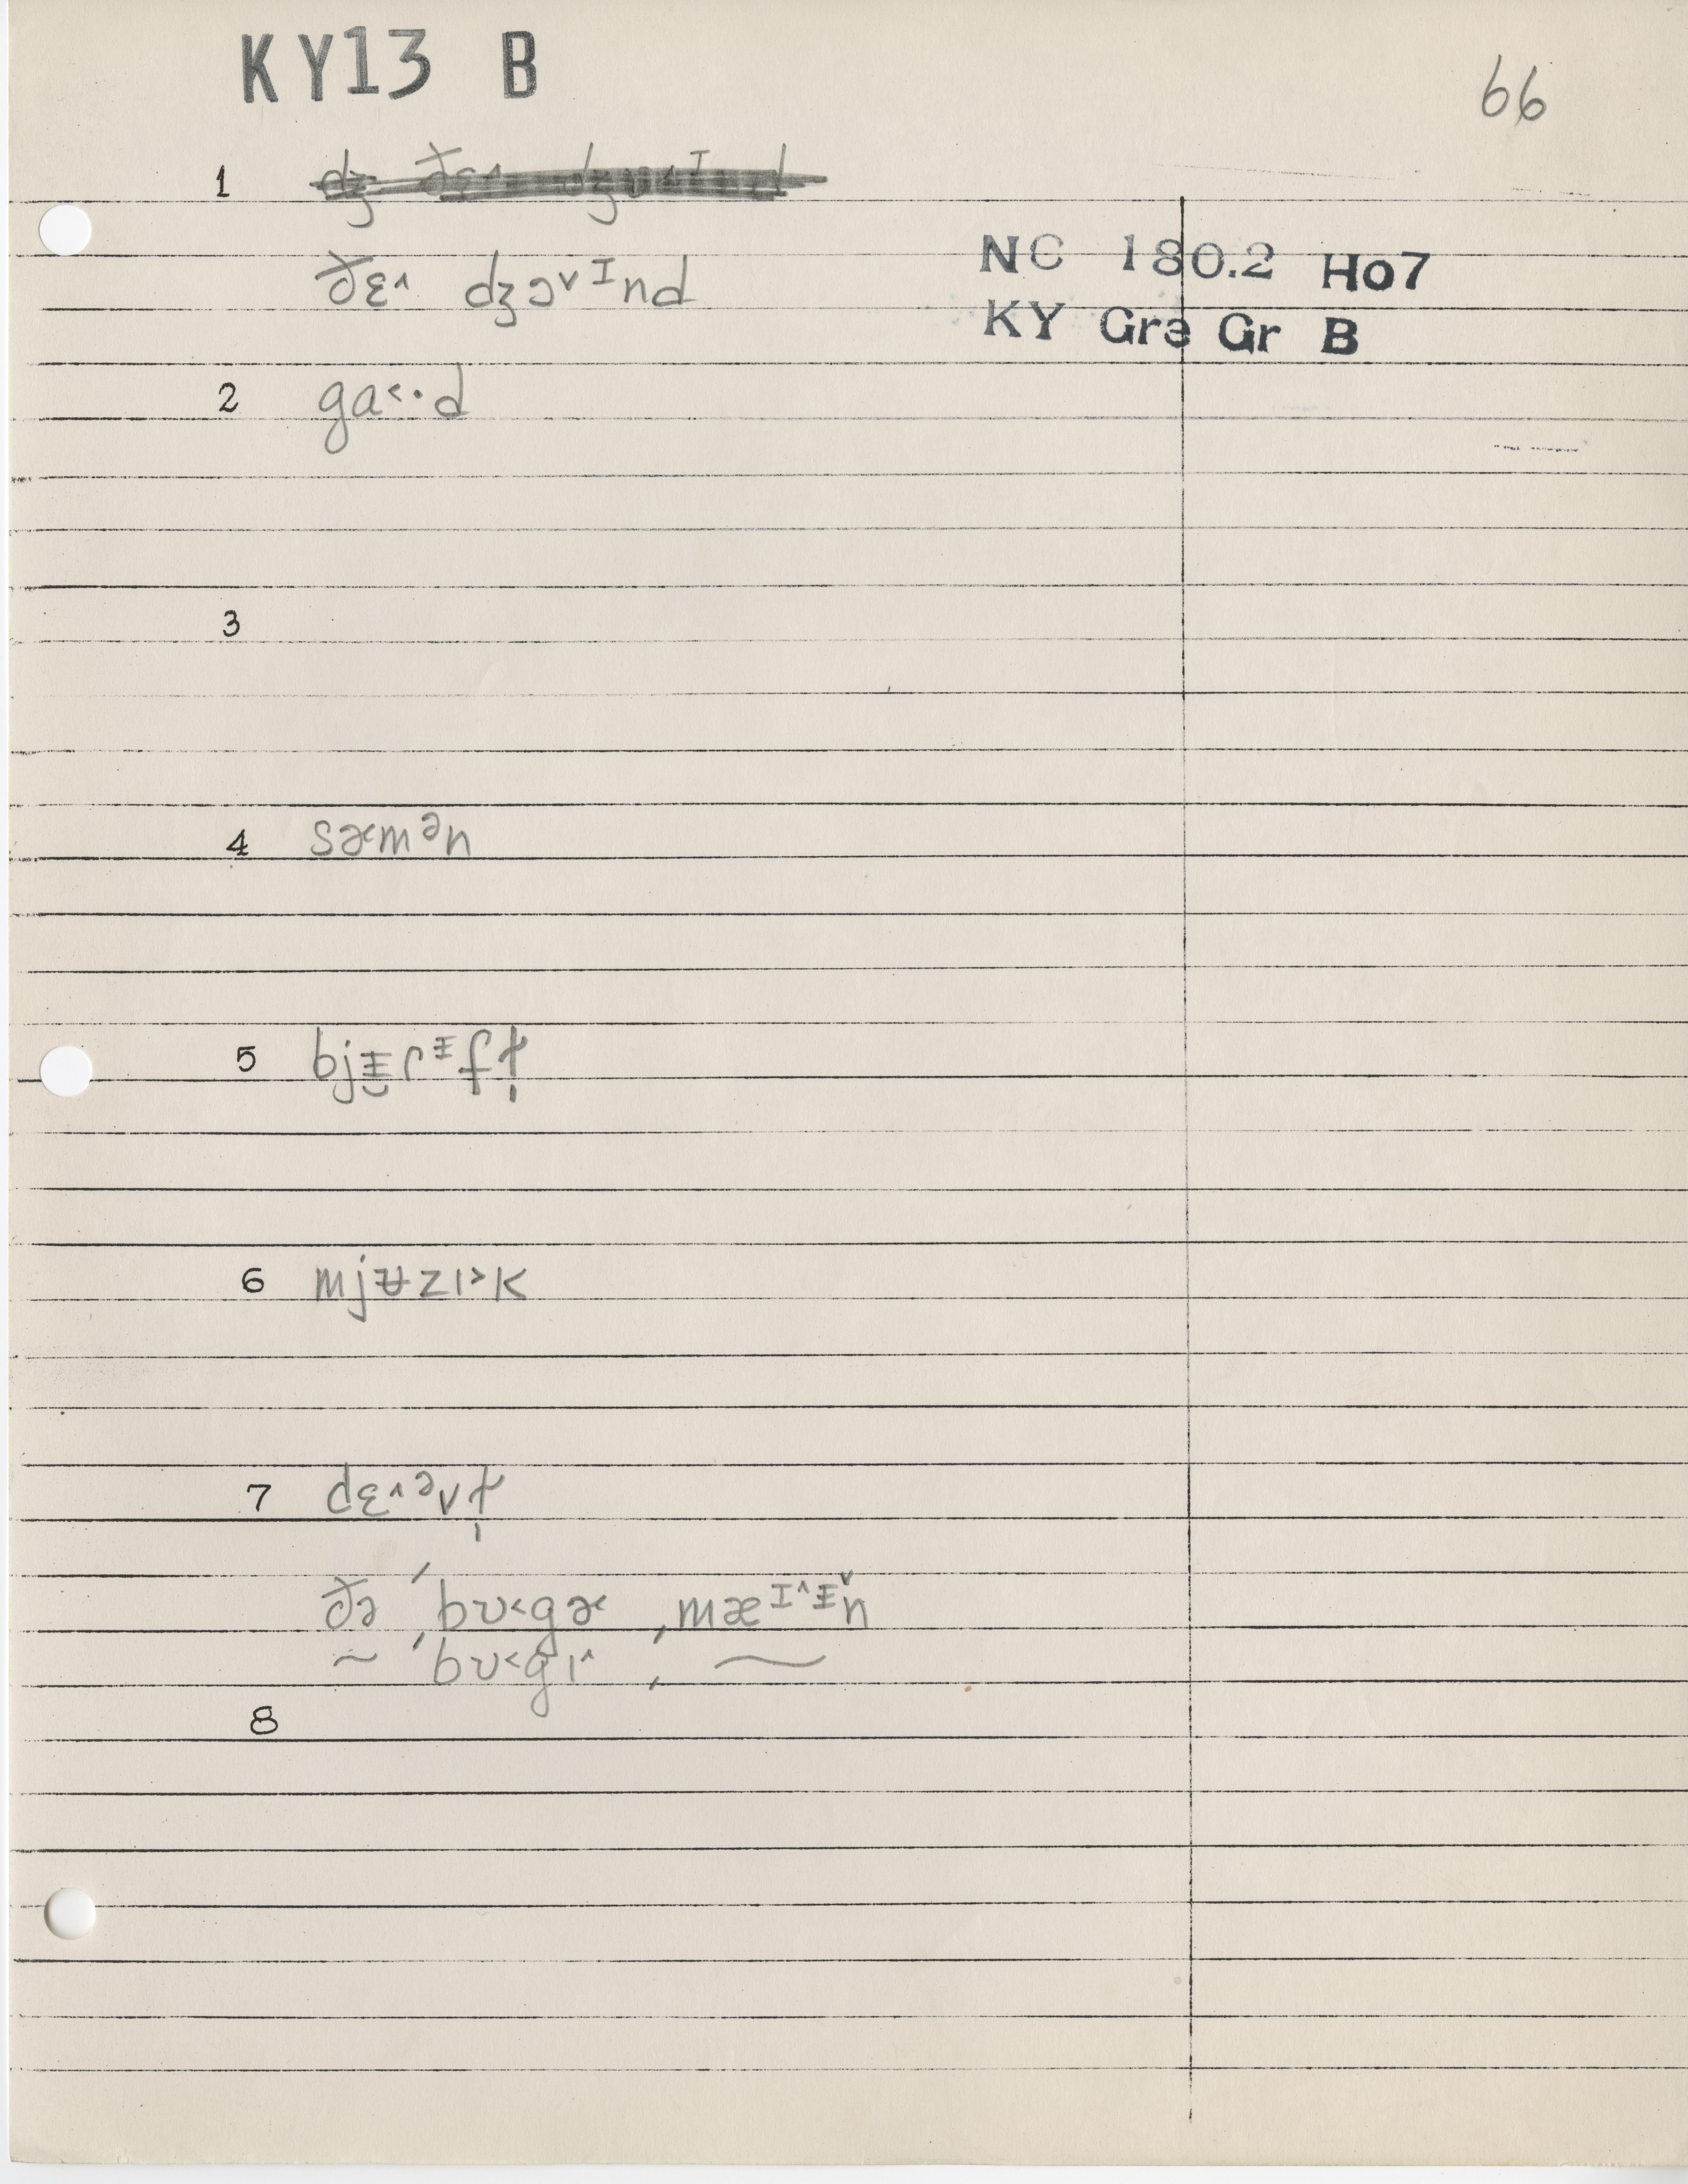 KY13 B
66
1
ðɛ˄ dʒɔ˅ᴵnd
NC 180.2 Ho7
KY Gre Gr B
2 ga˂·d
3
4 sɚ˂mᵊn
5 bjᵻ̆rᵻfɫ̩
6 mjʉzɪ˃k
7 dɛ˄ᵊvɫ̩
ðə ˈbʊ˂gɚ ˌmæᴵ˄ᵻ˅n
~ ˈbʊ˂gɪ˄ ˌ ~
8